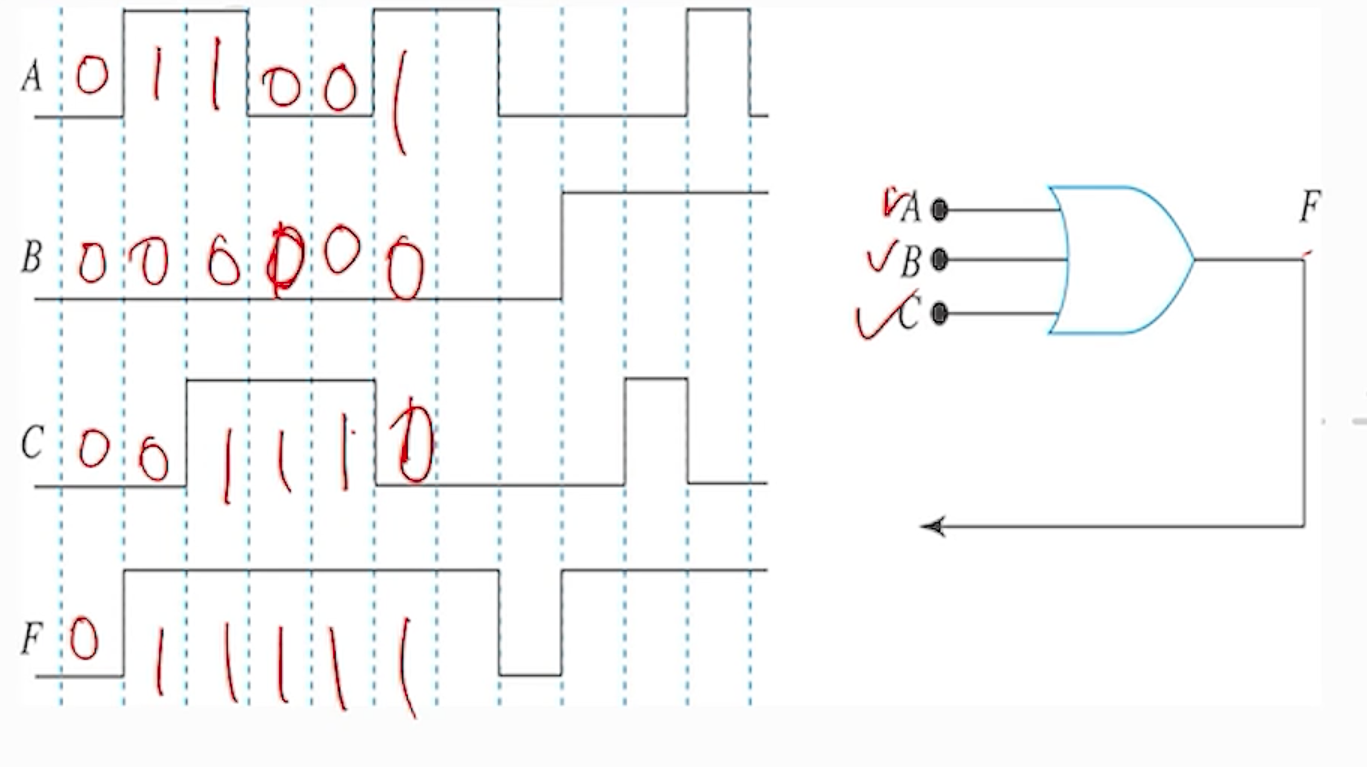 A 0 1 1 0 0 1
B 0 0 0 0 0 0
C 0 0 1 1 1 0
F 0 1 1 1 1 1
A
B
C
F